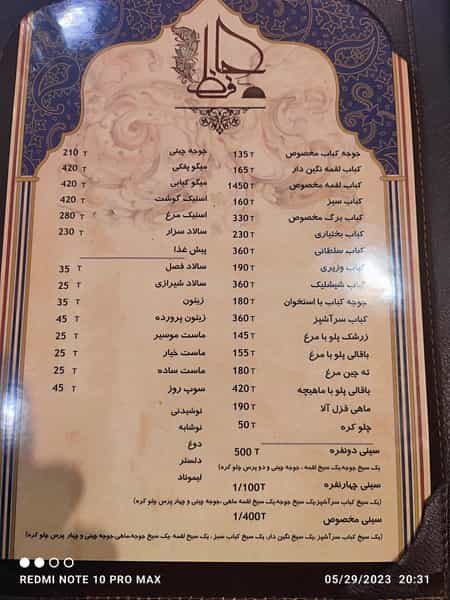 حافظ
جوجه کباب مخصوص 135 T
کباب لقمه نگین دار 165 T
کباب لقمه مخصوص 1450 T
کباب سبز 160 T
کباب برگ مخصوص 330 T
کباب بختیاری 230 T
کباب سلطانی 360 T
کباب وزیری 190 T
کباب شیشلیک 360 T
جوجه کباب با استخوان 180 T
کباب سرآشپز 360 T
زرشک پلو با مرغ 145 T
باقالی پلو با مرغ 155 T
ته چین مرغ 180 T
باقالی پلو با ماهیچه 420 T
ماهی قزل آلا 190 T
چلو کره 50 T
سینی دونفره 500 T
(یک سیخ جوجه،یک سیخ لقمه ، جوجه چینی و دو پرس چلو کره)
سینی چهارنفره 1/100T
(یک سیخ کباب سرآشپز،یک سیخ جوجه،یک سیخ لقمه ،ماهی،جوجه چینی و چهار پرس چلو کره)
سینی مخصوص 1/400T
(یک سیخ کباب سرآشپز ،یک سیخ نگین دار، یک سیخ کباب سبز ، یک سیخ لقمه ،یک سیخ جوجه،ماهی،جوجه چینی و چهار پرس چلو کره)
جوجه چینی 210 T
میگو پفکی 420 T
میگو کبابی 420 T
استیک گوشت 420 T
استیک مرغ 280 T
سالاد سزار 230 T
پیش غذا
سالاد فصل 35 T
سالاد شیرازی 25 T
زیتون 35 T
زیتون پرورده 45 T
ماست موسیر 25 T
ماست خیار 25 T
ماست ساده 25 T
سوپ روز 45 T
نوشیدنی
نوشابه
دوغ
دلستر
لیموناد
REDMI NOTE 10 PRO MAX
05/29/2023 20:31